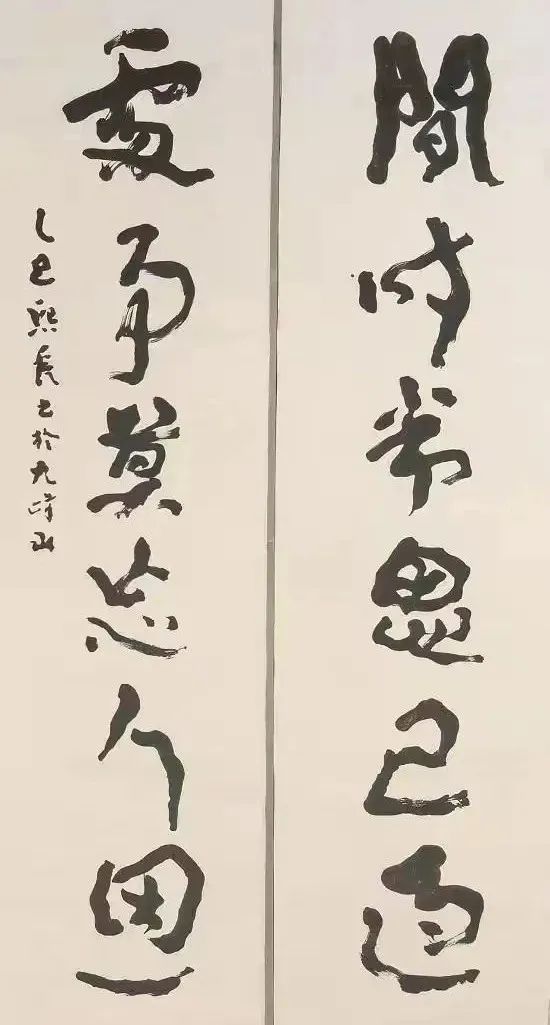 間時常思己過
處事莫忘人恩
乙巳熙長书於九峰山